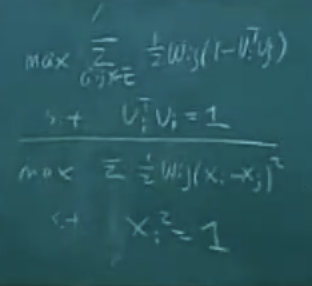 max Σ ½ Wij (1 - Viᵀ Vj)
(i,j)∈E
s.t ViᵀVi = 1
max Σ ½ Wij (xi - xj)²
s.t xi² = 1